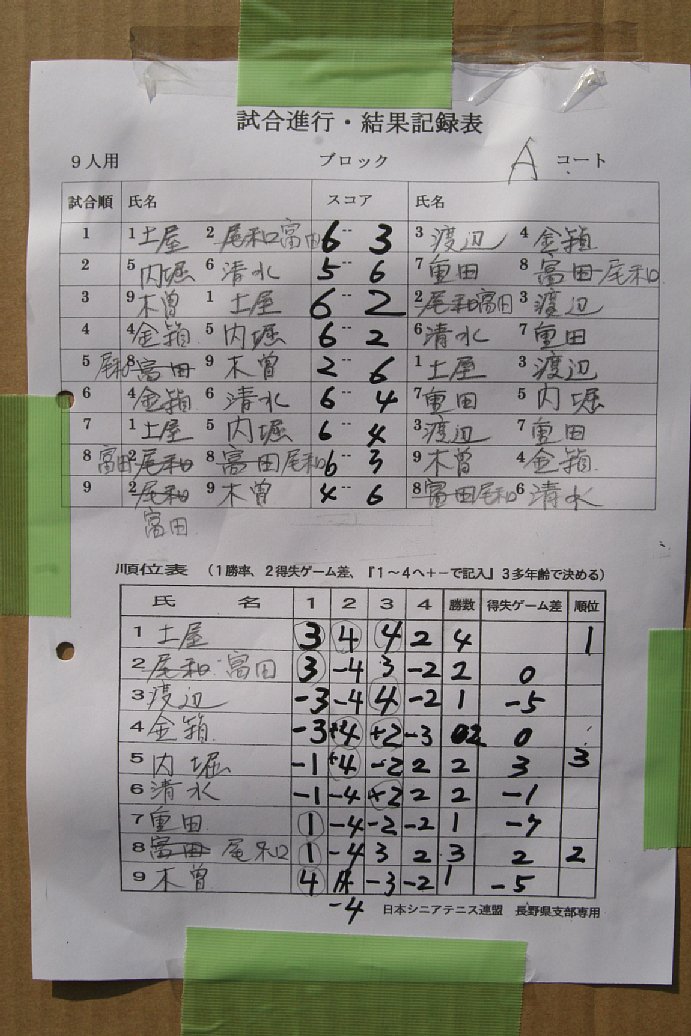 試合進行・結果記録表
9人用 ブロック A コート
試合順 氏名 スコア 氏名
1 1土屋 2尾和富田 6--3 3渡辺 4金箱
2 5内堀 6清水 5--6 7重田 8富田尾和
3 9木曽 1土屋 6--2 2尾和富田 3渡辺
4 4金箱 5内堀 6--2 6清水 7重田
5 尾和8富田 9木曽 2--6 1土屋 3渡辺
6 4金箱 6清水 6--4 7重田 5内堀
7 1土屋 5内堀 6--4 3渡辺 7重田
8 富田2尾和 8富田尾和 6--3 9木曽 4金箱
9 2尾和 9木曽 4--6 8富田尾和 6清水
富田
順位表 (1勝率、2得失ゲーム差、『1~4へ+-で記入』3多年齢で決める)
氏名 1 2 3 4 勝数 得失ゲーム差 順位
1土屋 3 4 4 2 4 1
2尾和 富田 3 -4 3 -2 2 0
3渡辺 -3 -4 4 -2 1 -5
4金箱 -3 +4 +2 -3 2 0
5内堀 -1 +4 -2 2 2 3 3
6清水 -1 -4 +2 2 2 -1
7重田 1 -4 -2 -2 1 -7
8富田 尾和 1 -4 3 2 3 2 2
9木曽 4 -3 -2 1 -5
-4 日本シニアテニス連盟 長野県支部専用